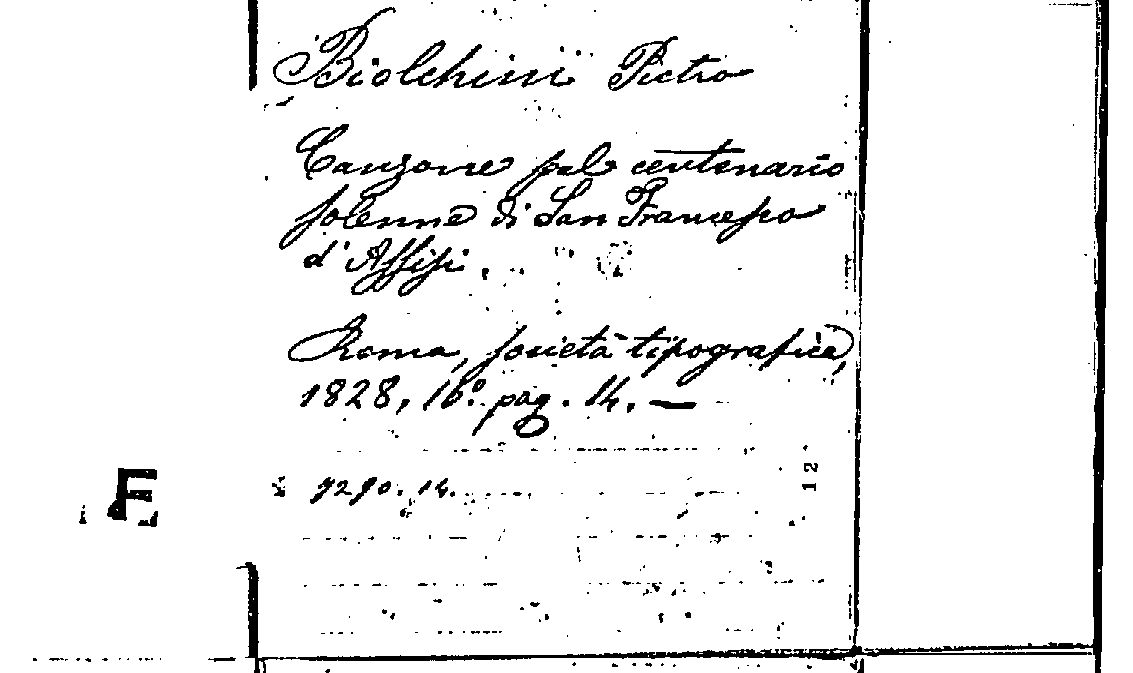 Biolchini Pietro
Canzone pel centenario
solenne di San Francesco
d'Assisi.
Roma, società tipografica,
1828, 16.° pag. 14. —
7290. 14.
12
F